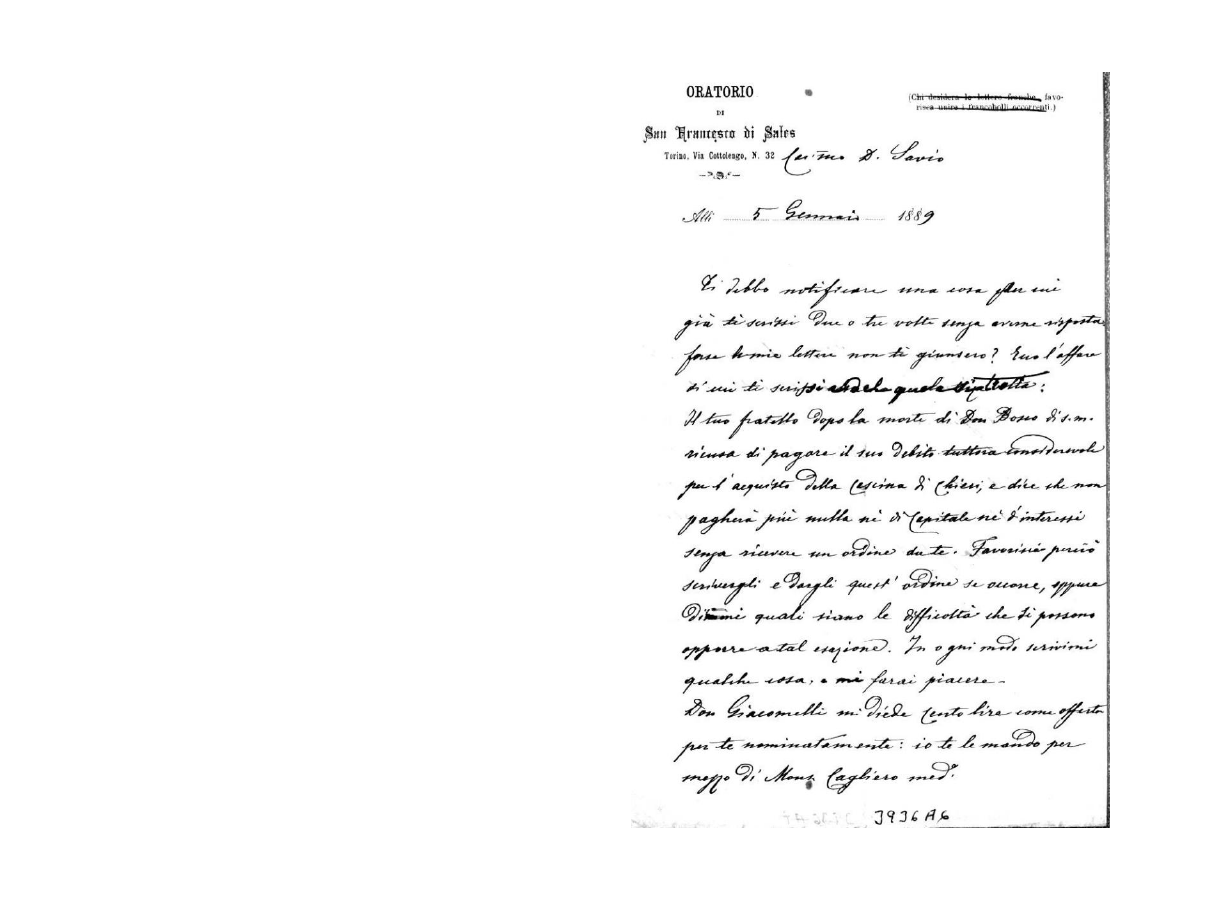 ORATORIO
DI
San Francesco di Sales
Torino, Via Cottolengo, N. 32
(Chi desidera le lettere franche, favo-
risca unire i francobolli occorrenti.)
Car.mo D. Savio
Alli 5 Gennaio 1889
Ti debbo notificare una cosa per cui
già ti scrissi due o tre volte senza averne risposta
forse le mie lettere non ti giunsero? Ecco l'affare
di cui ti scrissi :
Il tuo fratello dopo la morte di Don Bosco di s.m.
ricusa di pagare il suo debito tuttora considerevole
per l'acquisto della Cascina di Chieri, e dice che non
pagherà più nulla nè di Capitale nè d'interessi
senza ricevere un ordine da te. Favorisci perciò
scrivergli e dargli quest'ordine se occorre, oppure
dimmi quali siano le difficoltà che si possono
opporre a tal esazione. In ogni modo scrivimi
qualche cosa, e mi farai piacere.
Don Giacomelli mi diede cento lire come offerta
per te nominatamente: io te le mando per
mezzo di Mons. Cagliero med.
3936 A6